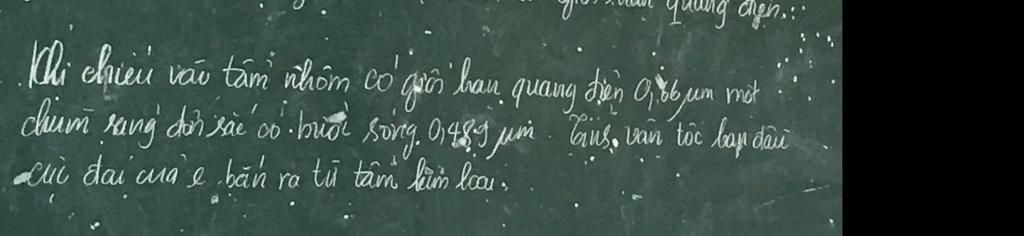 quang điện.
Khi chiếu vào tấm nhôm có giới hạn quang điện 0,66 μm một
chùm sáng đơn sắc có bước sóng 0,489 μm. Tính vận tốc ban đầu
cực đại của e bắn ra từ tấm kim loại.